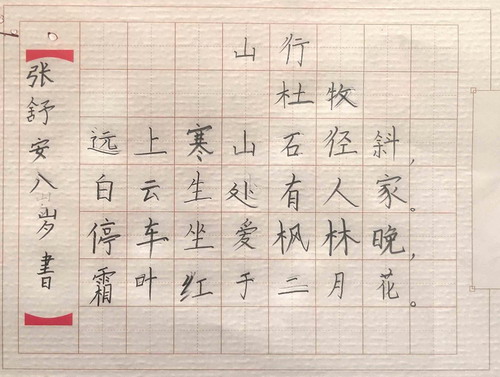 山行
杜牧
远上寒山石径斜，
白云生处有人家。
停车坐爱枫林晚，
霜叶红于二月花。
张舒安八岁書